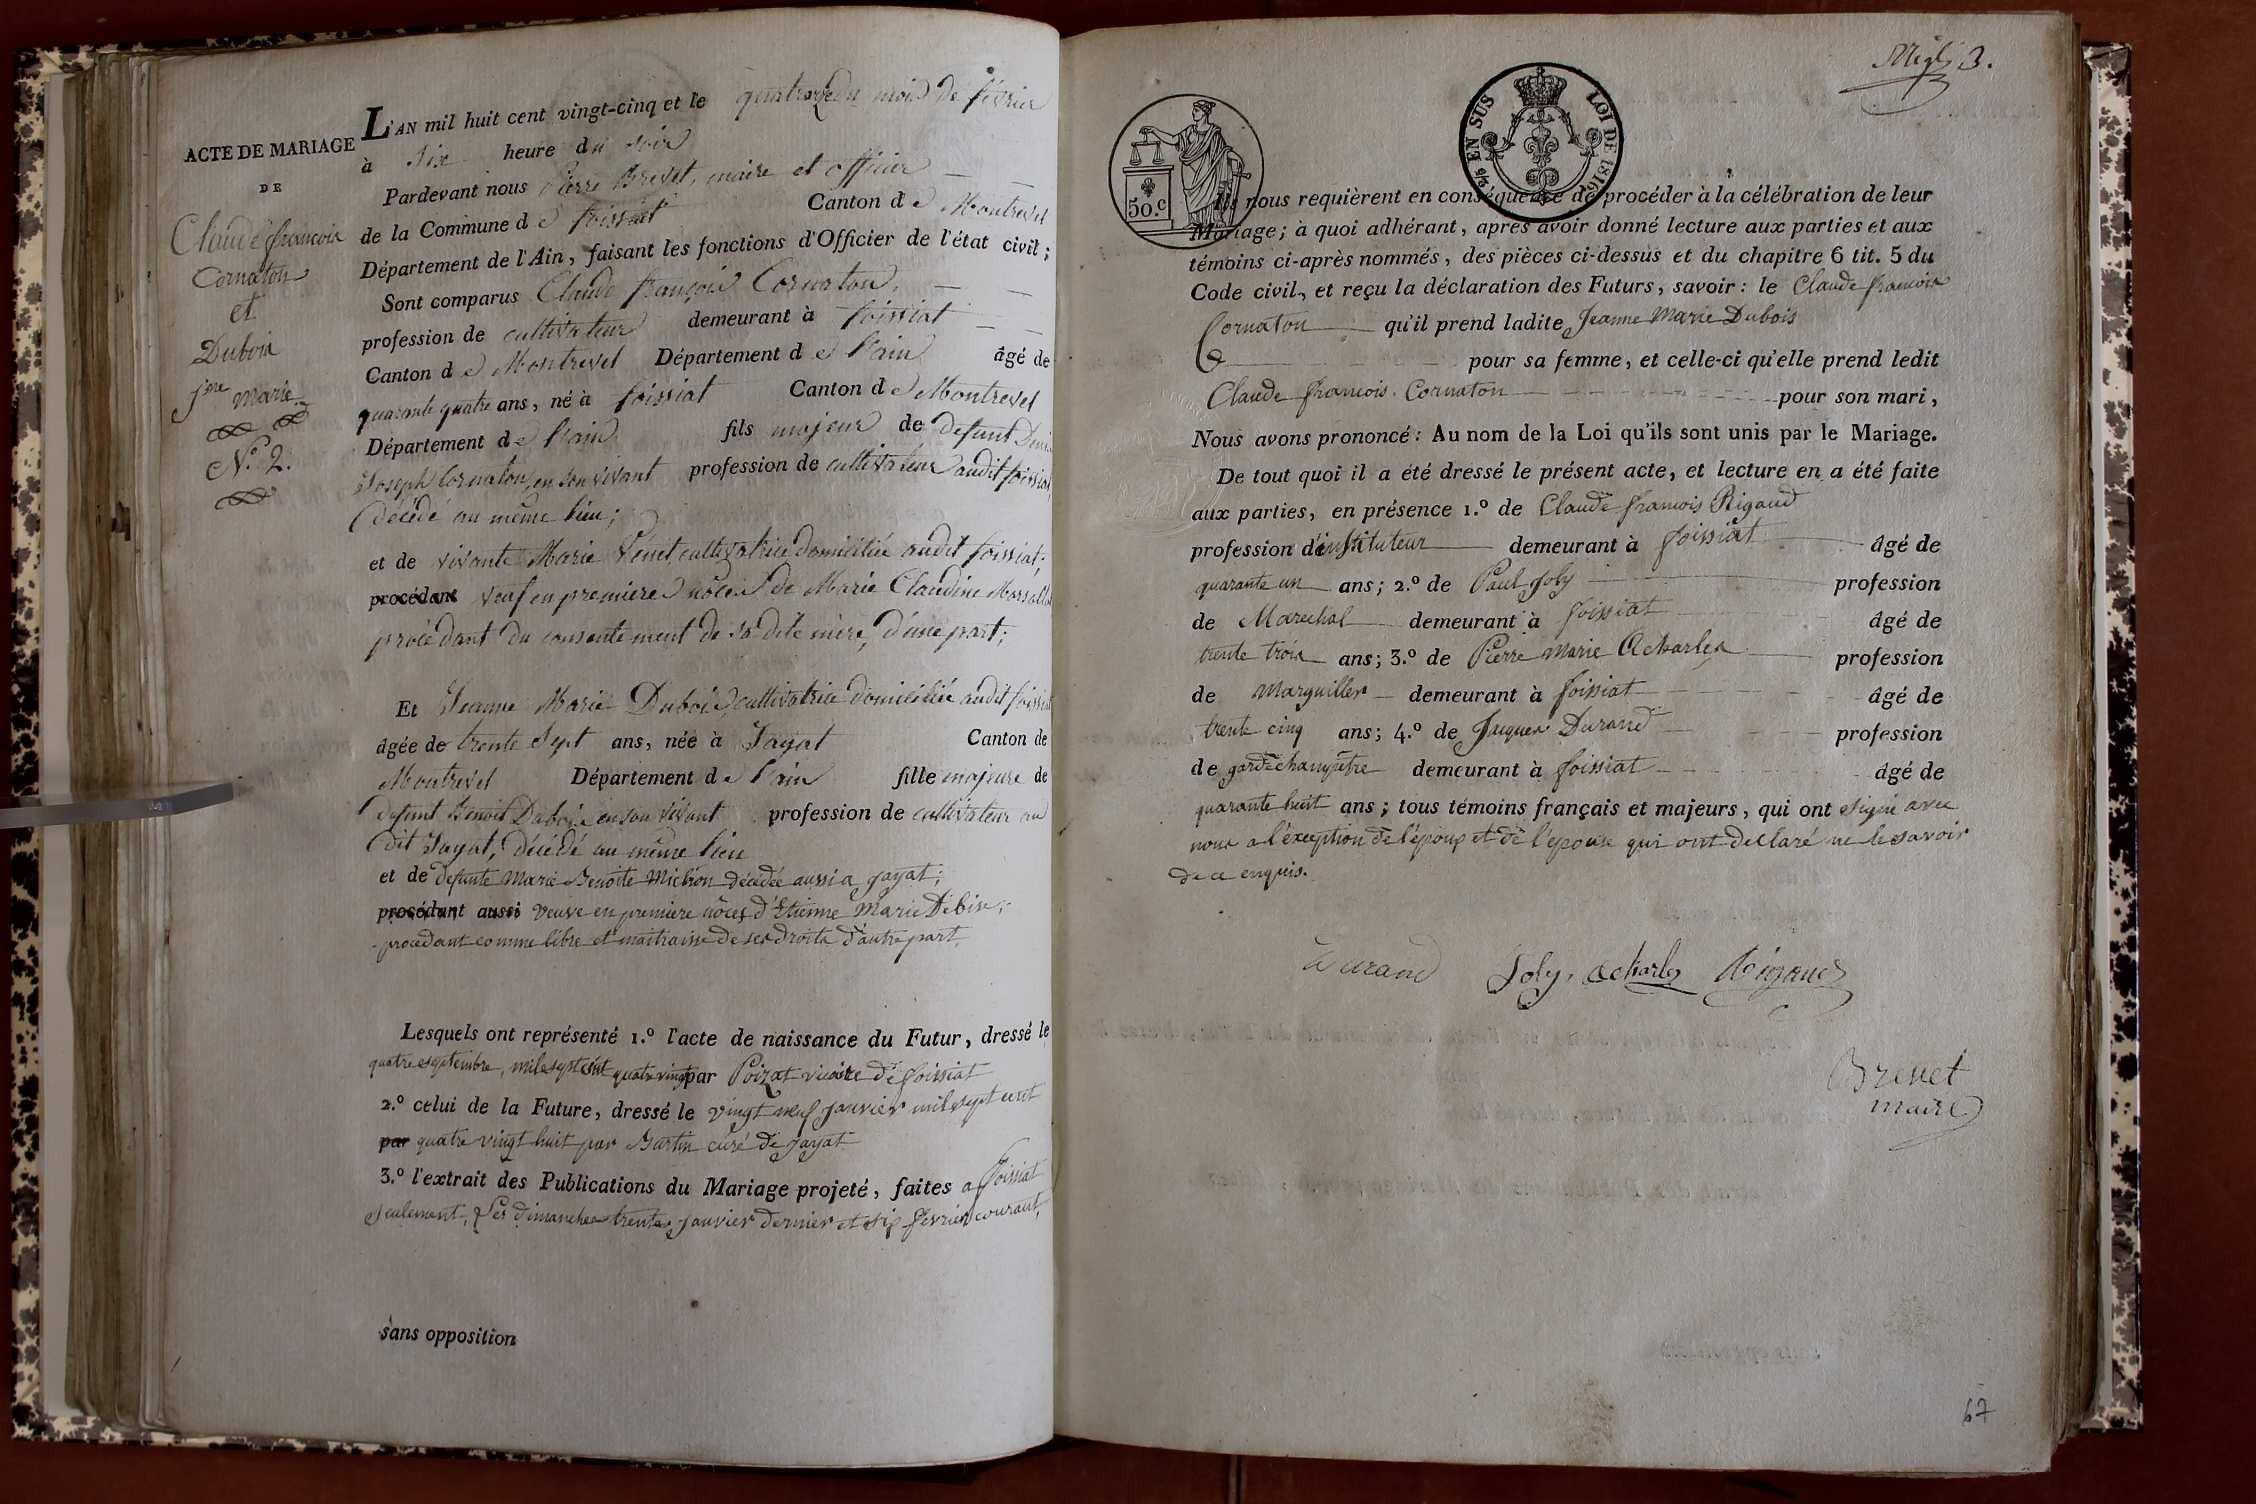 ACTE DE MARIAGE
DE
Claude françois
Cornaton
et
Dubois
jne marie
N.° 2.
L'AN mil huit cent vingt-cinq et le quatorze du mois de février
à Six heure du soir
Pardevant nous Pierre Brevet, maire et officier
de la Commune de foissiat Canton de Montrevel
Département de l'Ain, faisant les fonctions d'Officier de l'état civil;
Sont comparus Claude françois Cornaton,
profession de cultivateur demeurant à foissiat
Canton de Montrevel Département de l'ain âgé de
quarante quatre ans, né à foissiat Canton de Montrevel
Département de l'ain fils majeur de defunt
Joseph Cornaton, en son vivant profession de cultivateur audit foissiat
décédé au même lieu;
et de vivante Marie cultivatrice domiciliée audit foissiat;
procédant veuf en premiere nôces de Marie Claudine
procédant du consentement de sa dite mère, d'une part;
Et Jeanne Marie Dubois, cultivatrice domiciliée audit foissiat
âgée de trente Sept ans, née à Jayat Canton de
Montrevel Département de l'ain fille majeure de
defunt Benoit Dubois en son vivant profession de cultivateur au
dit Jayat, décédé au même lieu
et de defunte Marie Benoite Michon décédée aussi a Jayat;
procédant aussi veuve en premiere nôces d'Etienne Marie Debise;
procedant comme libre et maitraisse de ses droits d'autre part.
Lesquels ont représenté 1.° l'acte de naissance du Futur, dressé le
quatre septembre, mil sept cent quatre vingt par Poizat vicaire de foissiat
2.° celui de la Future, dressé le vingt neuf janvier mil sept cent
par quatre vingt huit par Bartin curé de Jayat
3.° l'extrait des Publications du Mariage projeté, faites a foissiat
Seulement, Les dimanches trente janvier dernier et six fevrier courant,
sans opposition
3.
50.c
EN SUS
LOI DE 1816
Ils nous requièrent en conséquence de procéder à la célébration de leur
Mariage; à quoi adhérant, après avoir donné lecture aux parties et aux
témoins ci-après nommés, des pièces ci-dessus et du chapitre 6 tit. 5 du
Code civil, et reçu la déclaration des Futurs, savoir: le Claude francois
Cornaton qu'il prend ladite Jeanne Marie Dubois
pour sa femme, et celle-ci qu'elle prend ledit
Claude francois Cornaton pour son mari,
Nous avons prononcé: Au nom de la Loi qu'ils sont unis par le Mariage.
De tout quoi il a été dressé le présent acte, et lecture en a été faite
aux parties, en présence 1.° de Claude francois Rigaud
profession d'instituteur demeurant à foissiat âgé de
quarante un ans; 2.° de Paul Joly profession
de Marechal demeurant à foissiat âgé de
trente trois ans; 3.° de Pierre Marie Acharles profession
de Marguiller demeurant à foissiat âgé de
trente cinq ans; 4.° de Jacques Durand profession
de gardechampêtre demeurant à foissiat âgé de
quarante huit ans; tous témoins français et majeurs, qui ont signé avec
nous a l'exception de l'epoux et de l'epouse qui ont declaré ne le savoir
de ce enquis.
Durand Joly, Acharles Rigaud
Brevet
maire
67